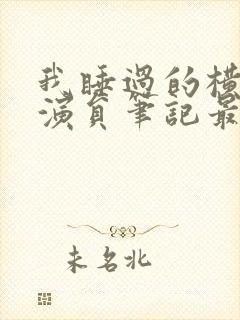 我睡過的橫
演員筆記最
未名北